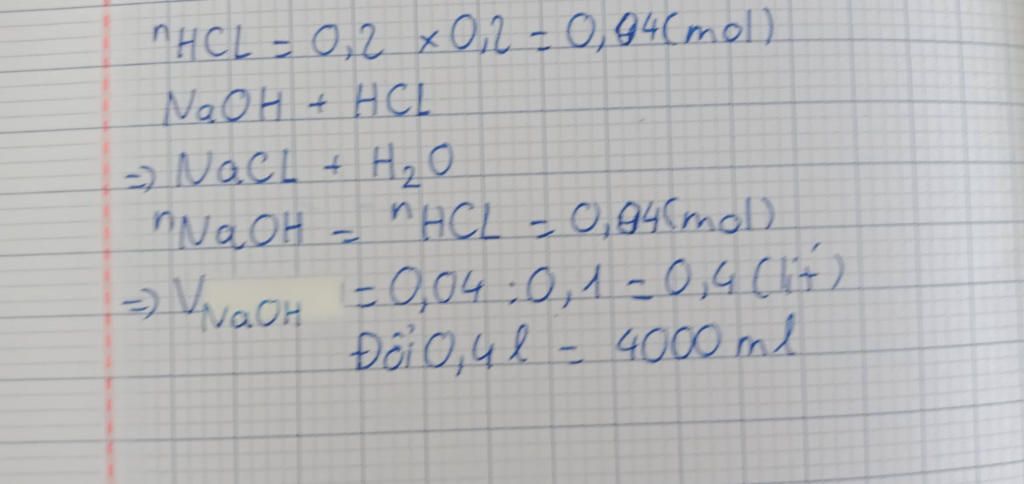 nHCL = 0,2 × 0,2 = 0,04(mol)
NaOH + HCL
=> NaCL + H₂O
nNaOH = nHCL = 0,04(mol)
=> VNaOH = 0,04 : 0,1 = 0,4 (lít)
Đổi 0,4l = 4000 ml